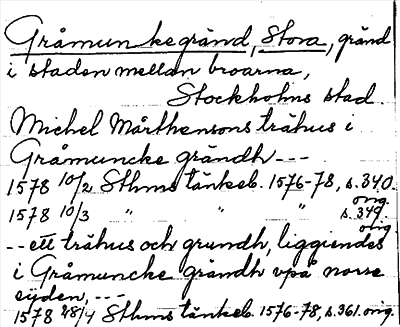 Gråmunkegränd, Stora, gränd
i staden mellan broarna,
Stockholms stad.
Michel Mårthensons trähus i
Gråmuncke grändh ---
1578 10/2 Sthms tänkeb. 1576-78, s. 340.
orig.
1578 10/3 " " " s. 349.
orig.
-- ett trähus och grundh, liggiendes
i Gråmuncke grändh vpå norre
sijden, ---
1578 28/4 Sthms tänkeb. 1576-78, s. 361. orig.